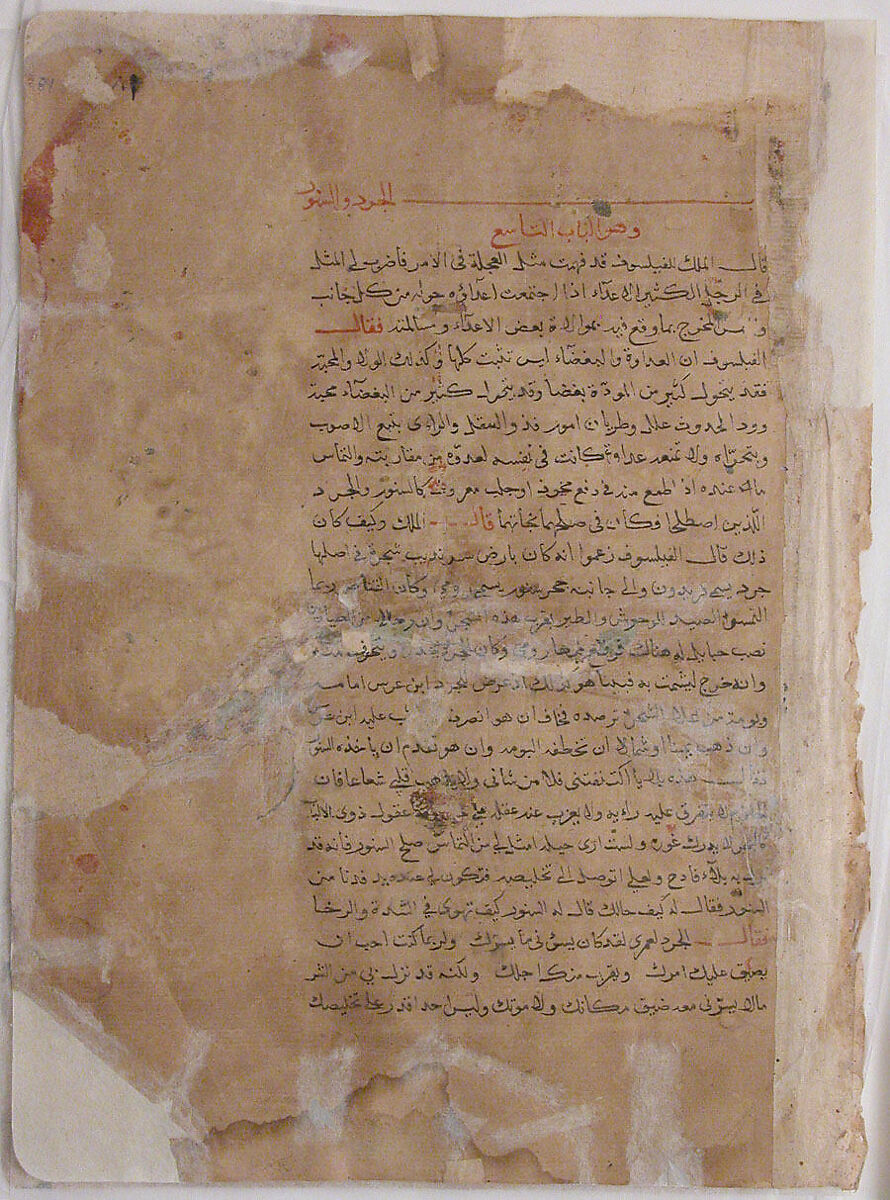 باب الجرد والسنور
وهو الباب التاسع
قال الملك للفيلسوف قد فهمت مثل العجلة في الامر فاضرب لي المثل
في الرجل الكثير الاعداء اذا اجتمعت اعداؤه حوله من كل جانب
المخرج بما وقع فيه بموالاة بعض الاعداء ومسالمته فقال
الفيلسوف ان العداوة والبغضاء ليس تثبت كلها وكذلك الولاء والمحبة
فقد يتحول كثير من المودة بغضا وقد يتحول كثير من البغضاء محبة
علل وطريان امور فذو العقل والراى يتبع الاصوب
ويتحراه ولا تمنعه عداوة كانت في نفسه لعدوه من مقاربته والتماس
ما عنده اذ اطمع منه في دفع مخوف او جلب معروف كالسنور والجرد
الذين اصطلحا وكان في صلحهما نجاتهما قال الملك وكيف كان
ذلك قال الفيلسوف زعموا انه كان بارض سرنديب شجرة في اصلها
جرد يسمى فريدون والى جانبه جحر سنور يسمى رومي وكان القناص ربما
الصيد الوحوش والطير بقرب هذه الشجرة وان رجلا من
نصب حبايله هنالك فوقع رومي وكان الجرد
وانه خرج ليشمت به فبينا هو كذلك اذ عرض للجرد ابن عرس امامه
وبومة من اعلا الشجرة ترصده فخاف ان هو انصرف عليه ابن
وان ذهب يمينا او شمالا ان تخطفه البومه وان هو تقدم ان ياخذه السنور
هذه بلايا اكتنفتني فلا من شاني ولا يذهب قلبي شعاعا فان
لا يتفرق عليه رايه ولا يعزب عنه عقله على عقول ذوى الالباب
لا يدرك غوره ولست ارى حيلة امثل لي من التماس صلح السنور فانه قد
نزل به بلاء فادح ولعلي اتوصل الى تخليصه فتكون لي عنده يد فدنا من
السنور فقال له كيف حالك قال له السنور كيف تهوى في الشدة والرخا
فقال الجرد لعمري لقد كان يسرني ما يسؤك ولربما كنت احب ان
يضيق عليك امرك ويقرب منك اجلك ولكنه قد نزل بي من الشر
مالا يسرني معه ضيق مكانك ولا موتك وليس احد اقدر على تخليصك